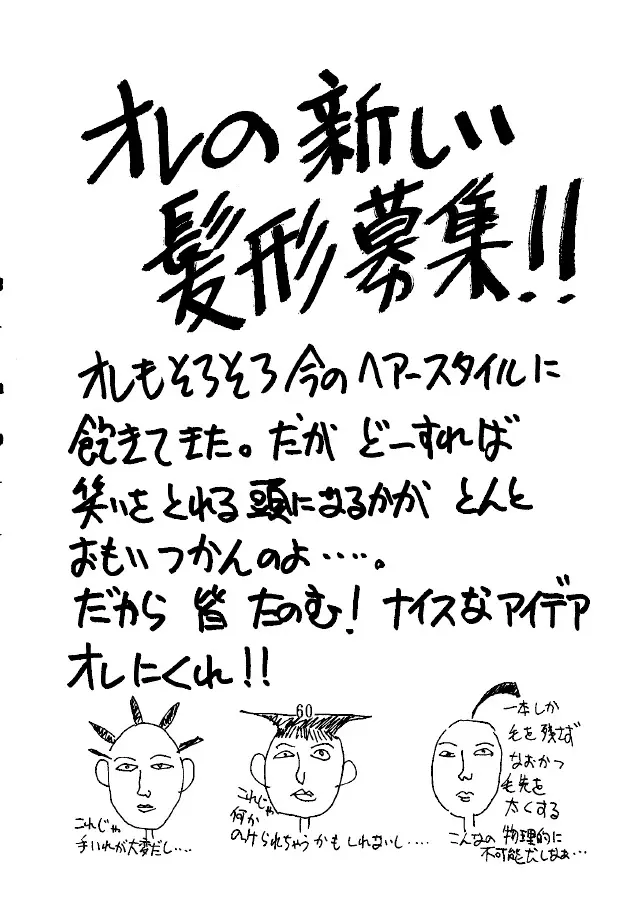 オレの新しい
髪形募集!!
オレもそろそろ今のヘアースタイルに
飽きてきた。だが どーすれば
笑いをとれる頭になるかが とんと
おもいつかんのよ‥‥。
だから 皆 たのむ! ナイスなアイデア
オレにくれ!!
これじゃ
手いれが大変だし‥‥
60
これじゃ
何か
のけられちゃうかもしれないし‥‥
一本しか
毛を残さず
なおかつ
毛先を
太くする
こんなの物理的に
不可能だしなぁ…